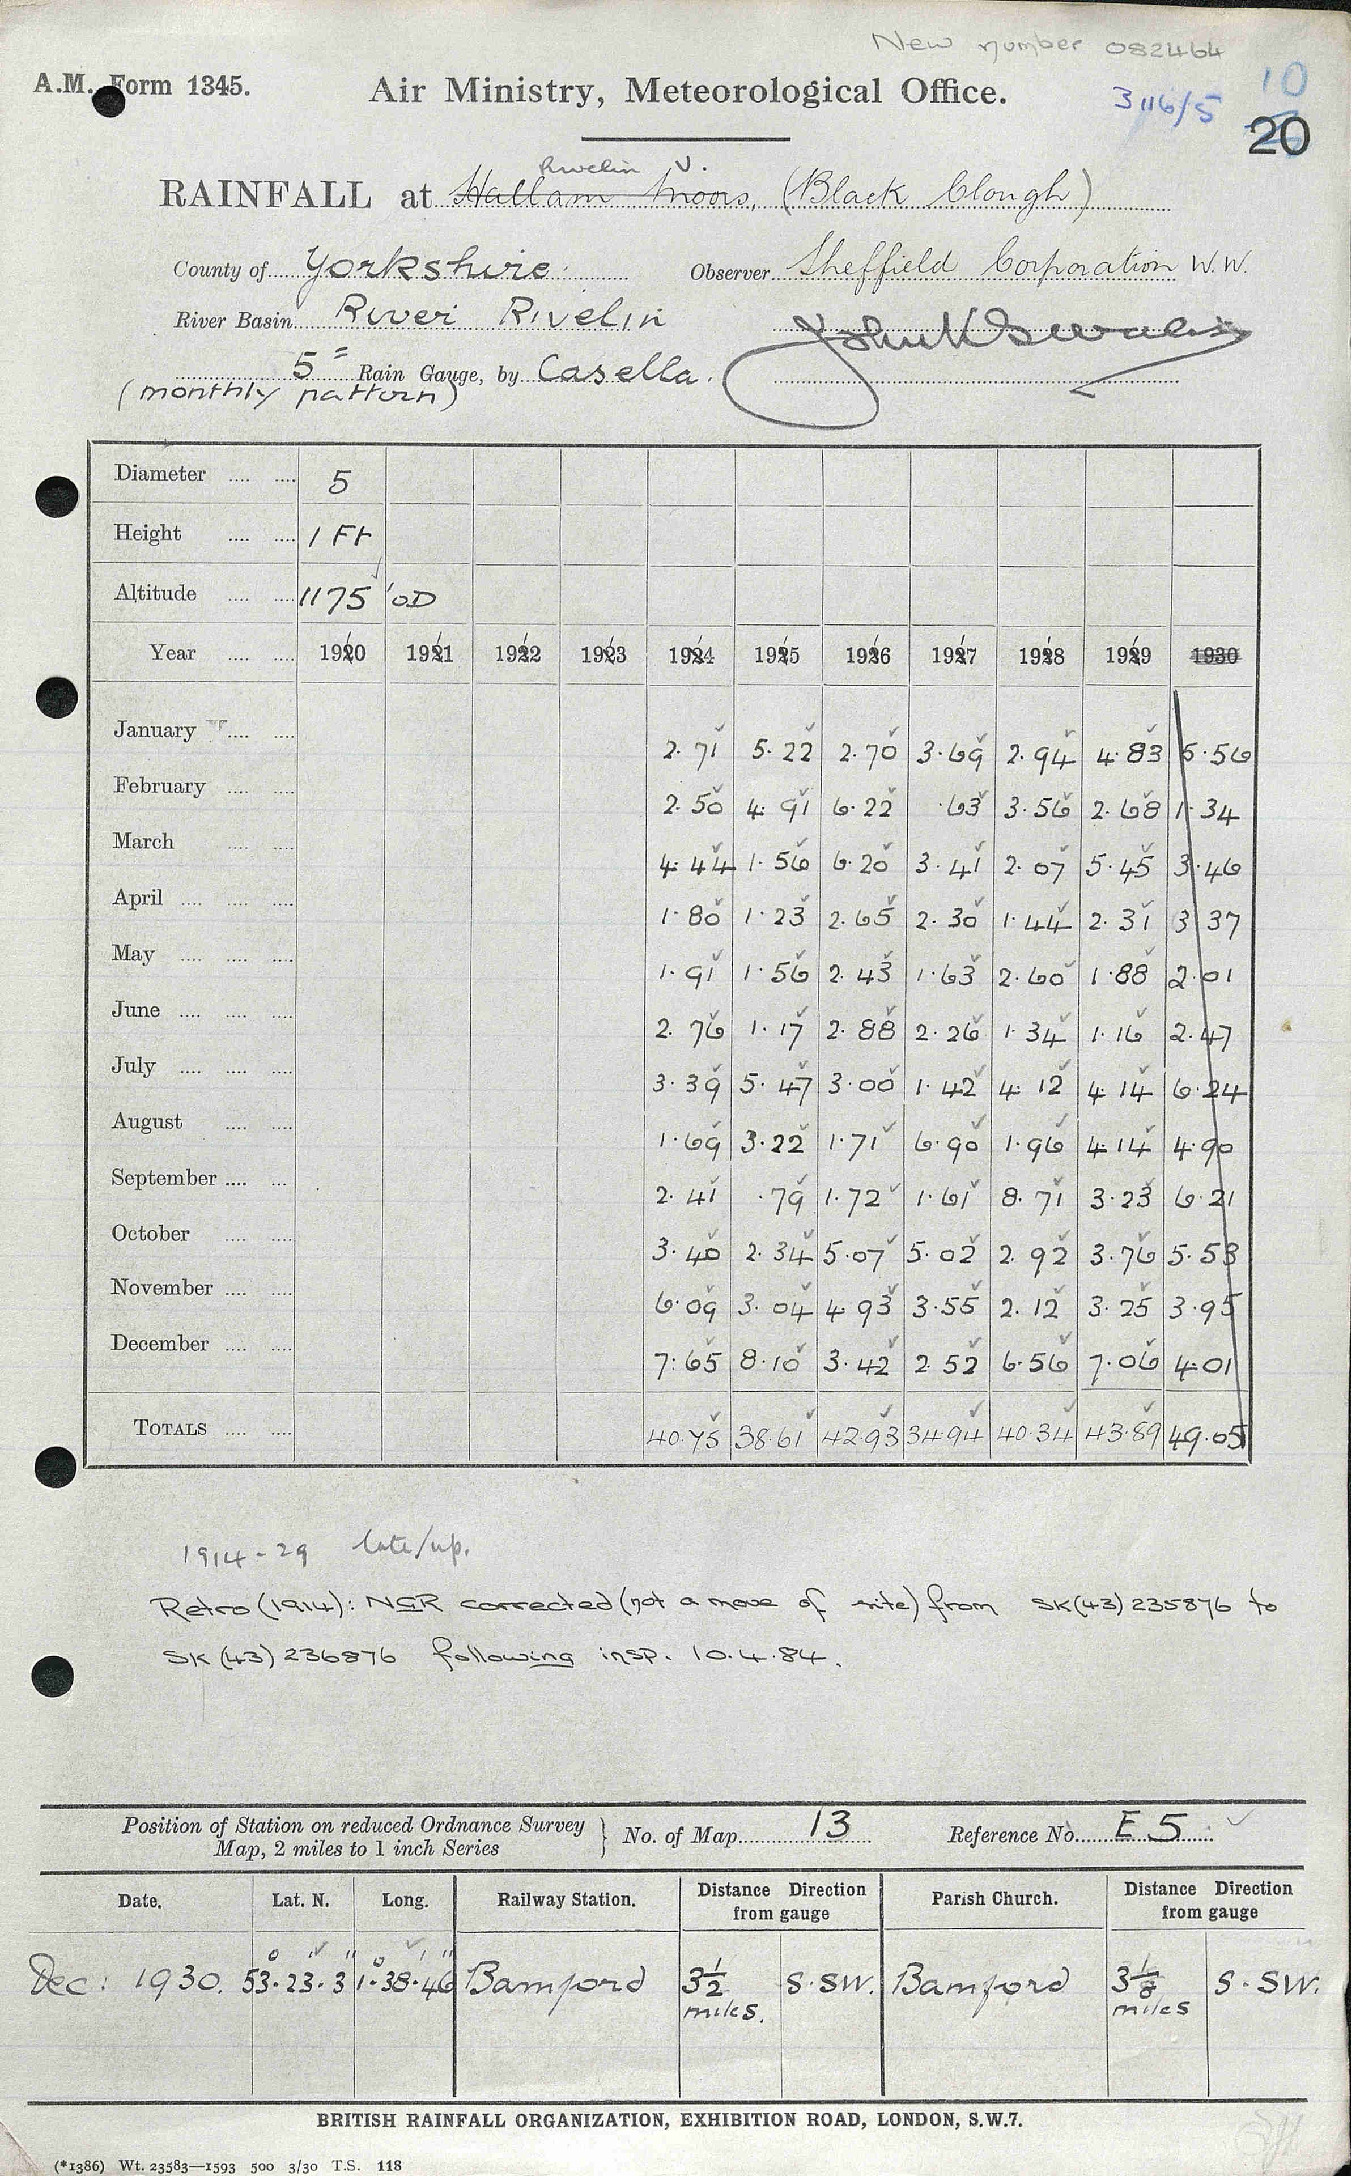 New number 082464
A.M. Form 1345.
Air Ministry, Meteorological Office.
3116/5
10
20
Rivelin V.
RAINFALL at Hallam Moors, (Black Clough)
County of Yorkshire. Observer Sheffield Corporation W.W.
River Basin River Rivelin
5" Rain Gauge, by Casella.
(monthly pattern)
Diameter .... .... 5
Height .... .... 1 Ft
Altitude .... .... 1175 'OD
Year .... .... 1910 1911 1912 1913 1914 1915 1916 1917 1918 1919 1930
January .... .... 2.71 5.22 2.70 3.69 2.94 4.83 5.56
February .... .... 2.50 4.91 6.22 .63 3.56 2.68 1.34
March .... .... 4.44 1.56 6.20 3.41 2.07 5.45 3.46
April .... .... .... 1.80 1.23 2.65 2.30 1.44 2.31 3.37
May .... .... .... 1.91 1.56 2.43 1.63 2.60 1.88 2.01
June .... .... .... 2.76 1.17 2.88 2.26 1.34 1.16 2.47
July .... .... .... 3.39 5.47 3.00 1.42 4.12 4.14 6.24
August .... .... 1.69 3.22 1.71 6.90 1.96 4.14 4.90
September .... .... 2.41 .79 1.72 1.61 8.71 3.23 6.21
October .... .... 3.40 2.34 5.07 5.02 2.92 3.76 5.53
November .... .... 6.09 3.04 4.93 3.55 2.12 3.25 3.95
December .... .... 7.65 8.10 3.42 2.52 6.56 7.06 4.01
TOTALS .... .... 40.75 38.61 42.93 34.94 40.34 43.89 49.05
1914-29 late/up.
Retro (1914): NGR corrected (not a move of site) from SK(43)235876 to
SK(43)236876 following insp. 10.4.84.
Position of Station on reduced Ordnance Survey
Map, 2 miles to 1 inch Series
No. of Map 13 Reference No. E 5
Date. Lat. N. Long. Railway Station. Distance from gauge Direction Parish Church. Distance from gauge Direction
Dec: 1930. 53°.23'.3" 1°.38'.46" Bamford 3½ miles. S.SW. Bamford 3⅛ miles S.SW.
BRITISH RAINFALL ORGANIZATION, EXHIBITION ROAD, LONDON, S.W.7.
(*1386) Wt. 23583—1593 500 3/30 T.S. 118